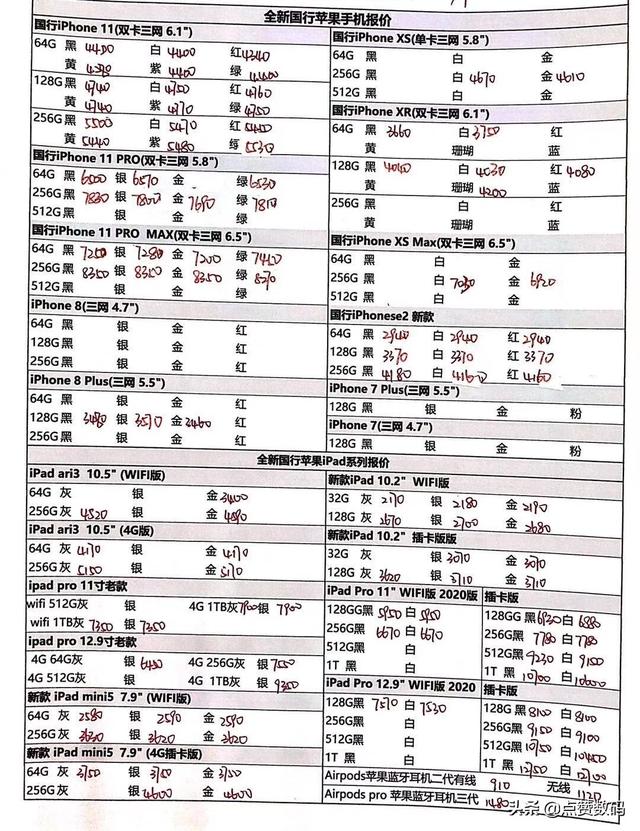 全新国行苹果手机报价
国行iPhone 11(双卡三网 6.1")
64G 黑 4400 白 4400 红 4340
黄 4390 紫 4400 绿 4400
128G 黑 4740 白 4750 红 4760
黄 4740 紫 4770 绿 4750
256G 黑 5500 白 5470 红 5450
黄 5440 紫 5480 绿 5530
国行iPhone 11 PRO(双卡三网 5.8")
64G 黑 6500 银 6570 金 绿 6530
256G 黑 7830 银 7800 金 7690 绿 7810
512G 黑 银 金 绿
国行iPhone 11 PRO MAX(双卡三网 6.5")
64G 黑 7250 银 7280 金 7200 绿 7400
256G 黑 8350 银 8350 金 8350 绿 8270
512G 黑 银 金 绿
iPhone 8(三网 4.7")
64G 黑 银 金 红
128G 黑 银 金 红
256G 黑 银 金 红
iPhone 8 Plus(三网 5.5")
64G 黑 银 金 红
128G 黑 3480 银 3570 金 3460 红
256G 黑 银 金 红
国行iPhone XS(单卡三网 5.8")
64G 黑 白 金
256G 黑 白 4670 金 4610
512G 黑 白 金
国行iPhone XR(双卡三网 6.1")
64G 黑 3660 白 3750 红
黄 珊瑚 蓝
128G 黑 4040 白 4030 红 4080
黄 珊瑚 4200 蓝
256G 黑 白 红
黄 珊瑚 蓝
国行iPhone XS Max(双卡三网 6.5")
64G 黑 白 金
256G 黑 白 7030 金 6920
512G 黑 白 金
国行iPhonese2 新款
64G 黑 2940 白 2940 红 2940
128G 黑 3370 白 3370 红 3370
256G 黑 4180 白 4160 红 4160
iPhone 7 Plus(三网 5.5")
128G 黑 银 金 粉
iPhone 7(三网 4.7")
128G 黑 银 金 粉
全新国行苹果iPad系列报价
iPad ari3 10.5" (WIFI版)
64G 灰 银 金 3400
256G 灰 4520 银 金 4590
iPad ari3 10.5" (4G版)
64G 灰 4170 银 金 4170
256G 灰 5150 银 金 5170
ipad pro 11寸老款
wifi 512G灰 银 4G 1TB灰 7900 银 7900
wifi 1TB灰 7350 银 7350
ipad pro 12.9寸老款
4G 64G灰 银 6450 4G 256G灰 银 7550
4G 512G灰 银 4G 1TB灰 银 9350
新款 iPad mini5 7.9" (WIFI版)
64G 灰 2580 银 2590 金 2590
256G 灰 3630 银 3620 金 3620
新款 iPad mini5 7.9" (4G插卡版)
64G 灰 3750 银 3750 金 3750
256G 灰 银 4600 金 4600
新款iPad 10.2" WIFI版
32G 灰 2170 银 2180 金 2190
128G 灰 2670 银 2700 金 2680
新款iPad 10.2" 插卡版版
32G 灰 银 3070 金 3070
128G 灰 3620 银 3710 金 3710
iPad Pro 11" WIFI版 2020版
128GG黑 5950 白 5950
256G黑 6670 白 6670
512G黑 白
1T 黑 白
插卡版
128GG 黑 6930 白 6880
256G黑 7780 白 7780
512G黑 9230 白 9150
1T 黑 10700 白 10600
iPad Pro 12.9" WIFI版 2020
128G 黑 7570 白 7530
256G黑 白
512G黑 白
1T 黑 白
插卡版
128G 黑 8100 白 8100
256G黑 9150 白 9100
512G黑 10750 白 10450
1T 黑 12750 白 12700
Airpods苹果蓝牙耳机二代有线 910 无线 1120
Airpods pro 苹果蓝牙耳机三代 1480
头条 @点赞数码